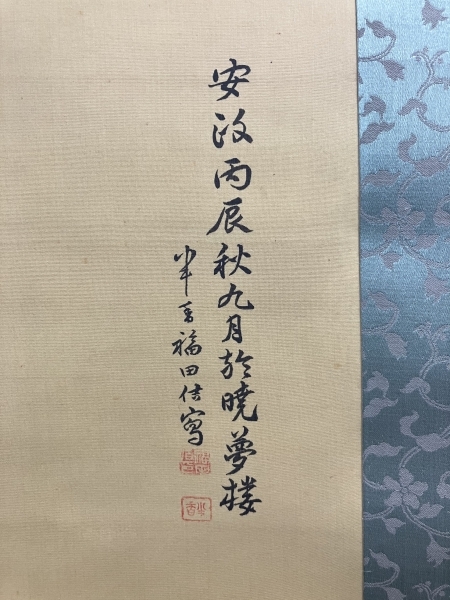 安政丙辰秋九月於曉夢楼
半香福田佶寫
半香